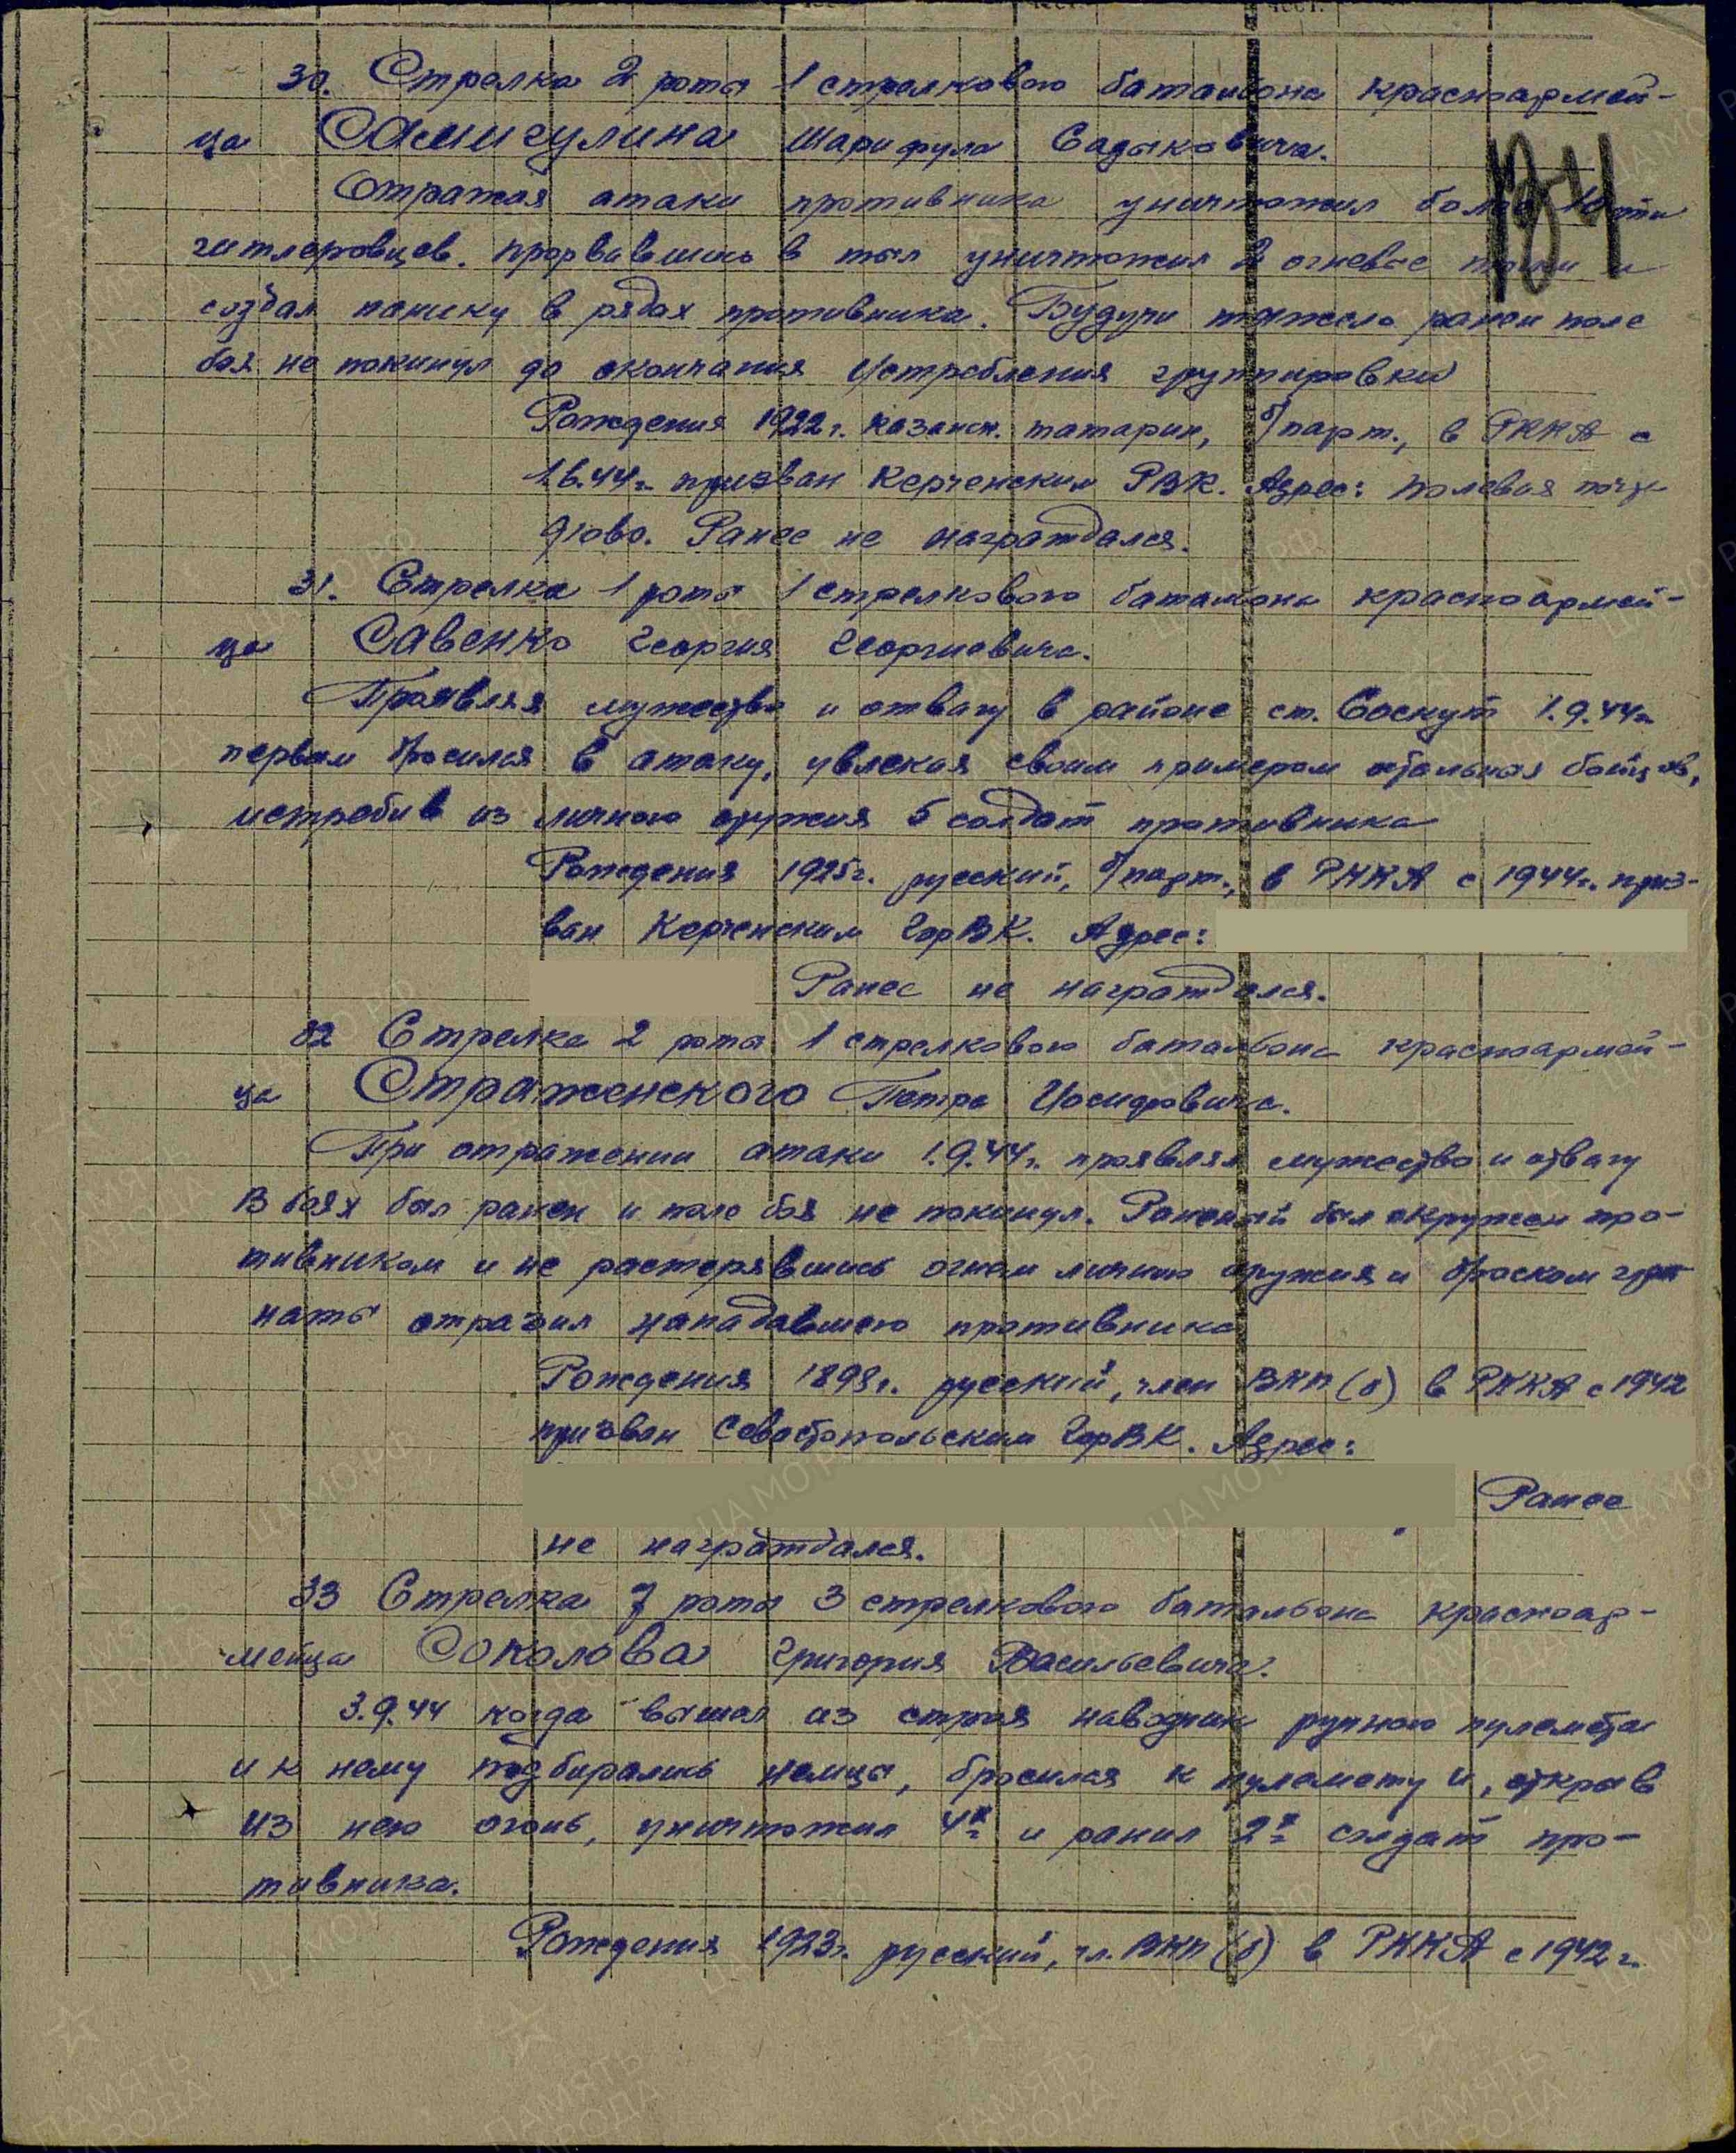 30. Стрелка 2 роты 1 стрелкового батальона красноармей-
ца Самигулина Шарифула Садыковича.
134
Отражая атаки противника уничтожил более
гитлеровцев. Прорвавшись в тыл уничтожил 2 огневые точки и
создал панику в рядах противника. Будучи тяжело ранен поле
боя не покинул до окончания истребления группировки
Рождения 1922г. казанск. татарин, б/парт., в РККА с
призван Керченским РВК. Адрес: Полевая почта
Ранее не награждался.
31. Стрелка 1 роты 1 стрелкового батальона красноармей-
ца Савенко Георгия Георгиевича.
Проявляя мужество и отвагу в районе ст. Боскут 1.9.44г.
первым бросился в атаку, увлекая своим примером остальных бойцов,
истребив из личного оружия 5 солдат противника
Рождения 1925г. русский, б/парт., в РККА с 1944г. приз-
ван Керченским ГорВК. Адрес:
Ранее не награждался.
32 Стрелка 2 роты 1 стрелкового батальона красноармей-
ца Страженского Петра Иосифовича.
При отражении атаки 1.9.44г. проявлял мужество и отвагу
В боях был ранен и поле боя не покинул. Раненый был окружен про-
тивником и не растерявшись огнем личного оружия и броском гра
наты отразил нападавшего противника
Рождения 1898г. русский, член ВКП(б) в РККА с 1942
призван Севастопольским ГорВК. Адрес:
Ранее
не награждался.
33 Стрелка 7 роты 3 стрелкового батальона красноар-
мейца Соколова Григория Васильевича.
3.9.44 когда вышел из строя наводчик ручного пулемета
и к нему подбирались немцы, бросился к пулемету и, открыв
из него огонь, уничтожил 4х и ранил 2х солдат про-
тивника.
Рождения 1923г. русский, чл. ВКП(б) в РККА с 1942г.